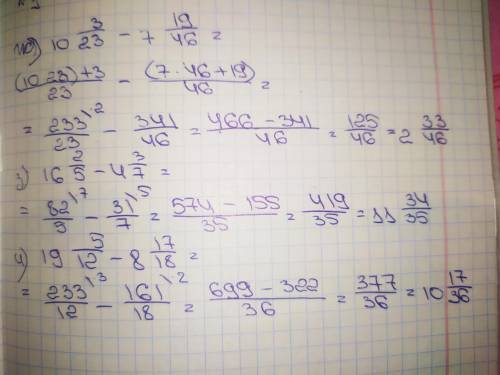 ж) 10 3/23 - 7 19/46 =
(10·23)+3/23 - (7·46+19)/46 =
= 233^2/23 - 341/46 = 466-341/46 = 125/46 = 2 33/46
з) 16 2/5 - 4 3/7 =
= 82^7/5 - 31^5/7 = 574-155/35 = 419/35 = 11 34/35
и) 19 5/12 - 8 17/18 =
= 233^3/12 - 161^2/18 = 699-322/36 = 377/36 = 10 17/36